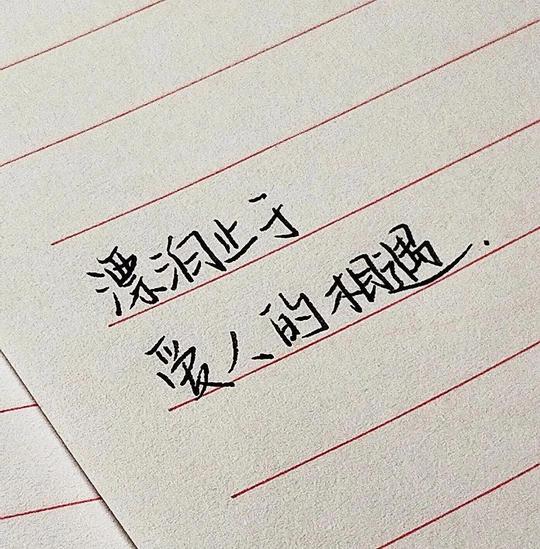 漂泊止于
爱人的相遇.